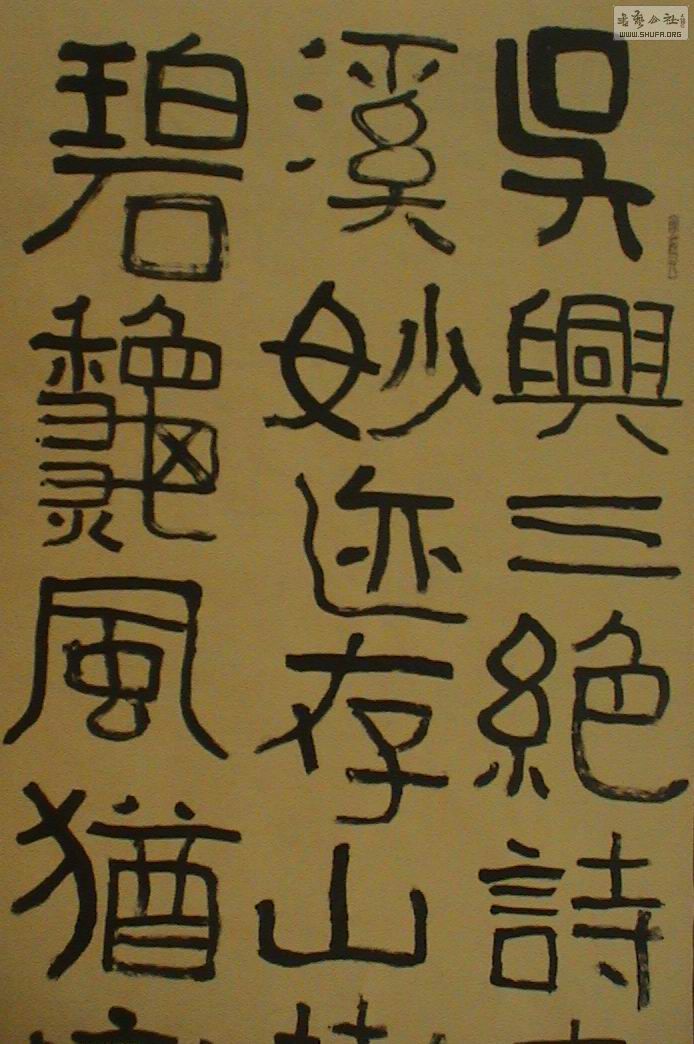 吳興三絕詩
溪妙迹存山
碧龝風猶
書藝公社
WWW.SHUFA.ORG